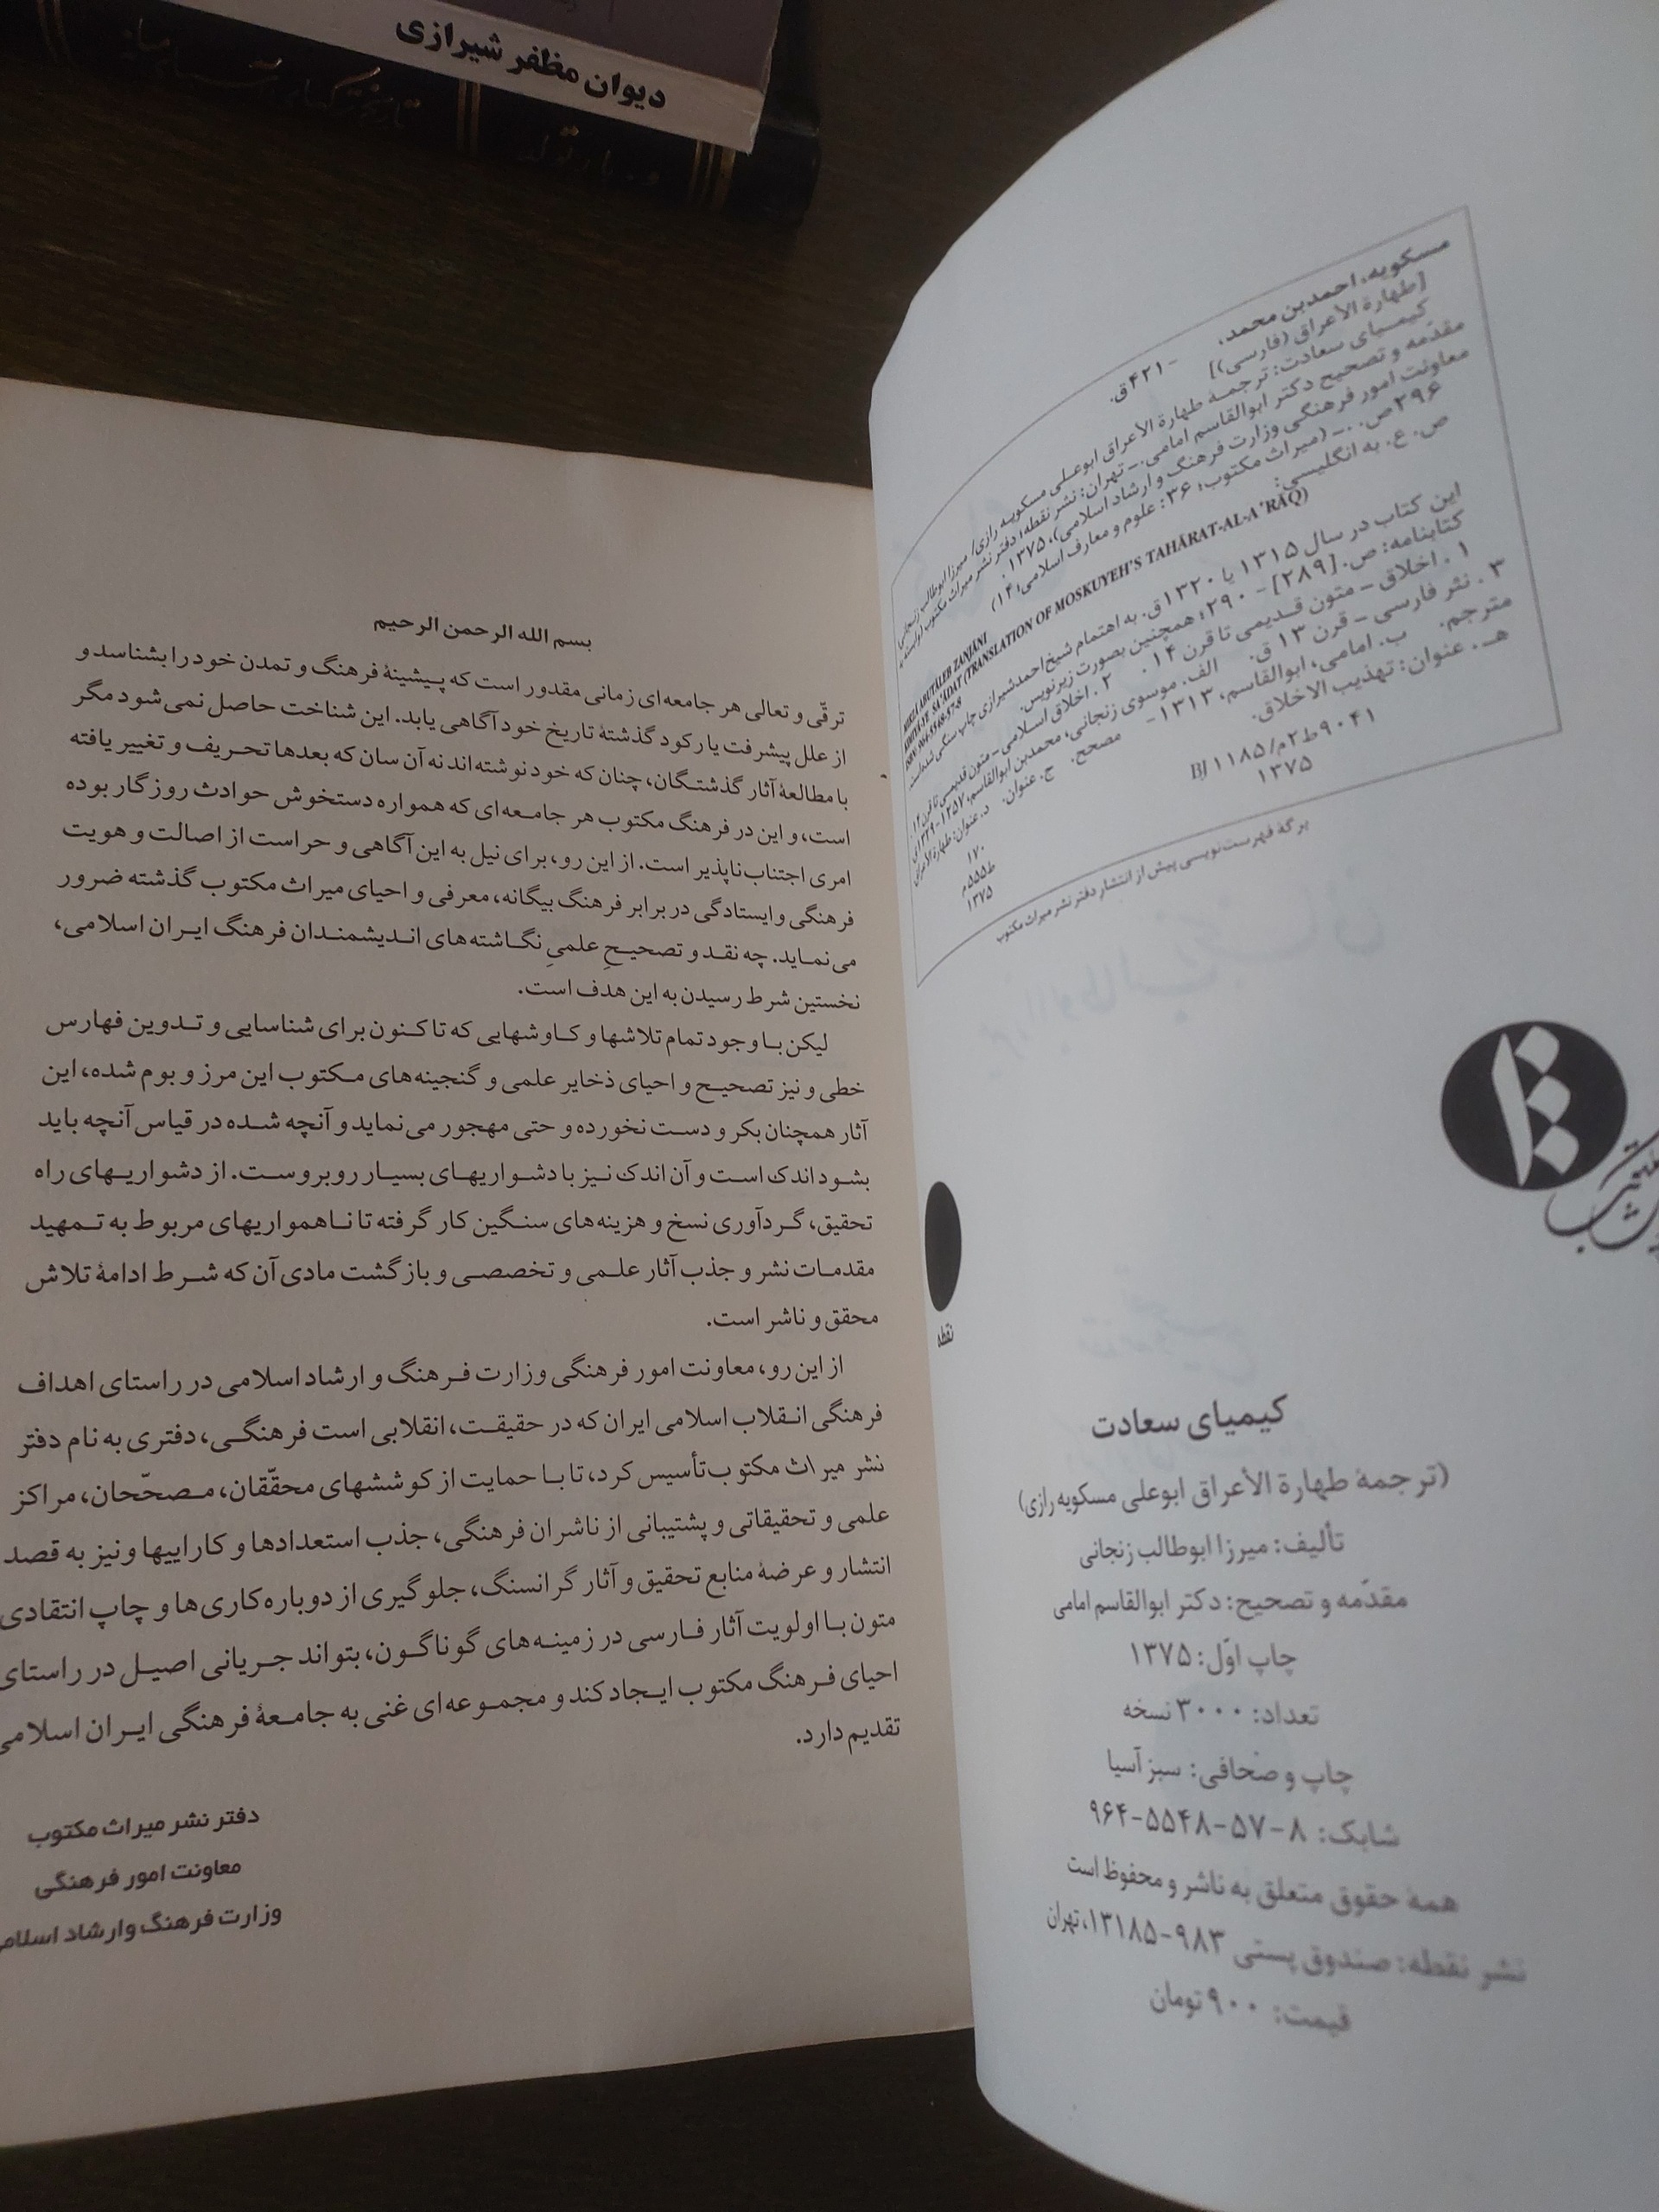 دیوان مظفر شیرازی
مسکویه، احمدبن محمد، - ۴۲۱ق.
[طهارة الأعراق (فارسی)]
کیمیای سعادت: ترجمهٔ طهارة الأعراق ابوعلی مسکویه رازی/ میرزا ابوطالب زنجانی
مقدّمه و تصحیح دکتر ابوالقاسم امامی. ـ تهران: نشر نقطه؛ دفتر نشر میراث مکتوب (وابسته به
معاونت امور فرهنگی وزارت فرهنگ و ارشاد اسلامی)، ۱۳۷۵.
۲۹۶ص. ـ (میراث مکتوب؛ ۳۶: علوم و معارف اسلامی؛ ۱۴)
ص. ع. به انگلیسی:
MIRZĀ ABUTĀLEB ZANJĀNI
KIMIYĀ-YE SA'ĀDAT (TRANSLATION OF MOSKUYEH'S TAHĀRAT-AL-A'RĀQ)
ISBN: 964-5548-57-8
این کتاب در سال ۱۳۱۵ یا ۱۳۲۰ق. به اهتمام شیخ احمد شیرازی چاپ سنگی شده است
کتابنامه: ص. [۲۸۹] - ۲۹۰؛ همچنین بصورت زیرنویس.
۱. اخلاق – متون قدیمی تا قرن ۱۴. ۲. اخلاق اسلامی – متون قدیمی تا قرن ۱۴.
۳. نثر فارسی – قرن ۱۳ ق. الف. موسوی زنجانی، محمدبن ابوالقاسم، ۱۲۵۷-۱۳۲۹ق
مترجم. ب. امامی، ابوالقاسم، ۱۳۱۳- مصحح. ج. عنوان. د. عنوان: طهارة الأعراق
هـ. عنوان: تهذیب الاخلاق.
۱۷۰
۹۰۴۱ط۲م/BJ ۱۱۸۵
ط۵۵۵م
۱۳۷۵
۱۳۷۵
برگهٔ فهرست‌نویسی پیش از انتشار دفتر نشر میراث مکتوب
نقطه
کیمیای سعادت
(ترجمهٔ طهارة الأعراق ابوعلی مسکویه رازی)
تألیف: میرزا ابوطالب زنجانی
مقدّمه و تصحیح: دکتر ابوالقاسم امامی
چاپ اوّل: ۱۳۷۵
تعداد: ۳۰۰۰ نسخه
چاپ و صحافی: سبز آسیا
شابک: ۸-۵۷-۵۵۴۸-۹۶۴
همهٔ حقوق متعلق به ناشر و محفوظ است
نشر نقطه: صندوق پستی ۹۸۳-۱۳۱۸۵، تهران
قیمت: ۹۰۰ تومان
بسم الله الرحمن الرحیم
ترقّی و تعالی هر جامعه‌ای زمانی مقدور است که پیشینهٔ فرهنگ و تمدن خود را بشناسد و
از علل پیشرفت یا رکود گذشتهٔ تاریخ خود آگاهی یابد. این شناخت حاصل نمی‌شود مگر
با مطالعهٔ آثار گذشتگان، چنان که خود نوشته‌اند نه آن سان که بعدها تحریف و تغییر یافته
است، و این در فرهنگ مکتوب هر جامعه‌ای که همواره دستخوش حوادث روزگار بوده
امری اجتناب‌ناپذیر است. از این رو، برای نیل به این آگاهی و حراست از اصالت و هویت
فرهنگی و ایستادگی در برابر فرهنگ بیگانه، معرفی و احیای میراث مکتوب گذشته ضرور
می‌نماید. چه نقد و تصحیحِ علمیِ نگاشته‌های اندیشمندان فرهنگ ایران اسلامی،
نخستین شرط رسیدن به این هدف است.
لیکن با وجود تمام تلاشها و کاوشهایی که تاکنون برای شناسایی و تدوین فهارس
خطی و نیز تصحیح و احیای ذخایر علمی و گنجینه‌های مکتوب این مرز و بوم شده، این
آثار همچنان بکر و دست نخورده و حتی مهجور می‌نماید و آنچه شده در قیاس آنچه باید
بشود اندک است و آن اندک نیز با دشواریهای بسیار روبروست. از دشواریهای راه
تحقیق، گردآوری نسخ و هزینه‌های سنگین کار گرفته تا ناهمواریهای مربوط به تمهید
مقدمات نشر و جذب آثار علمی و تخصصی و بازگشت مادی آن که شرط ادامهٔ تلاش
محقق و ناشر است.
از این رو، معاونت امور فرهنگی وزارت فرهنگ و ارشاد اسلامی در راستای اهداف
فرهنگی انقلاب اسلامی ایران که در حقیقت، انقلابی است فرهنگی، دفتری به نام دفتر
نشر میراث مکتوب تأسیس کرد، تا با حمایت از کوششهای محقّقان، مصحّحان، مراکز
علمی و تحقیقاتی و پشتیبانی از ناشران فرهنگی، جذب استعدادها و کاراییها و نیز به قصد
انتشار و عرضهٔ منابع تحقیق و آثار گرانسنگ، جلوگیری از دوباره‌کاری‌ها و چاپ انتقادی
متون با اولویت آثار فارسی در زمینه‌های گوناگون، بتواند جریانی اصیل در راستای
احیای فرهنگ مکتوب ایجاد کند و مجموعه‌ای غنی به جامعهٔ فرهنگی ایران اسلامی
تقدیم دارد.
دفتر نشر میراث مکتوب
معاونت امور فرهنگی
وزارت فرهنگ و ارشاد اسلامی